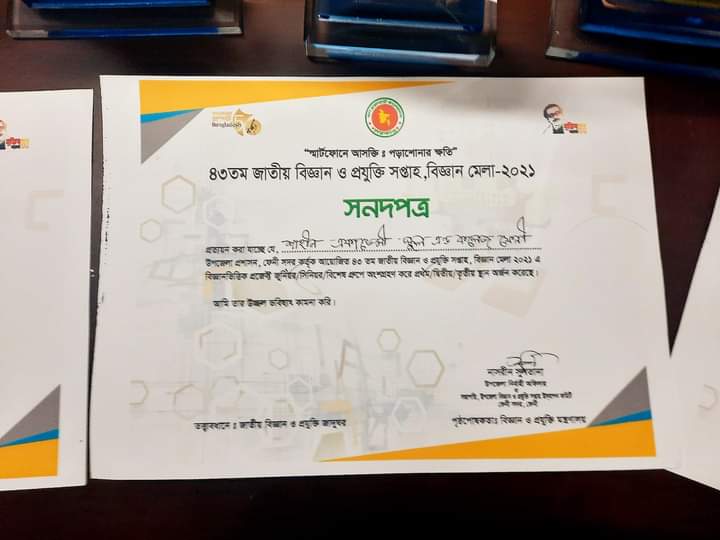 Bangladesh
"স্মার্টফোনে আসক্তি ঃ পড়াশোনার ক্ষতি"
৪৩তম জাতীয় বিজ্ঞান ও প্রযুক্তি সপ্তাহ,বিজ্ঞান মেলা-২০২১
সনদপত্র
প্রত্যয়ন করা যাচ্ছে যে, শাহীন একাডেমী স্কুল এন্ড কলেজ ফেনী
উপজেলা প্রশাসন, ফেনী সদর কর্তৃক আয়োজিত ৪৩ তম জাতীয় বিজ্ঞান ও প্রযুক্তি সপ্তাহ, বিজ্ঞান মেলা ২০২১ এ
বিজ্ঞানভিত্তিক প্রজেক্ট জুনিয়র/সিনিয়র/বিশেষ গ্রুপে অংশগ্রহণ করে প্রথম/দ্বিতীয়/তৃতীয় স্থান অর্জন করেছে।
আমি তার উজ্জ্বল ভবিষ্যৎ কামনা করি।
নাসরীন সুলতানা
উপজেলা নির্বাহী অফিসার
ও
সভাপতি, উপজেলা বিজ্ঞান ও প্রযুক্তি সপ্তাহ উদযাপন কমিটি
ফেনী সদর, ফেনী
তত্ত্বাবধানে ঃ জাতীয় বিজ্ঞান ও প্রযুক্তি জাদুঘর
পৃষ্ঠপোষকতায়ঃ বিজ্ঞান ও প্রযুক্তি মন্ত্রণালয়